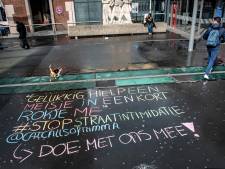 GELUKKIG HELPEEN
MEISJE IN EEN KORT
ROKJE ME
#STOPSTRAATINTIMIDATIE
DOE MET ONS MEE!